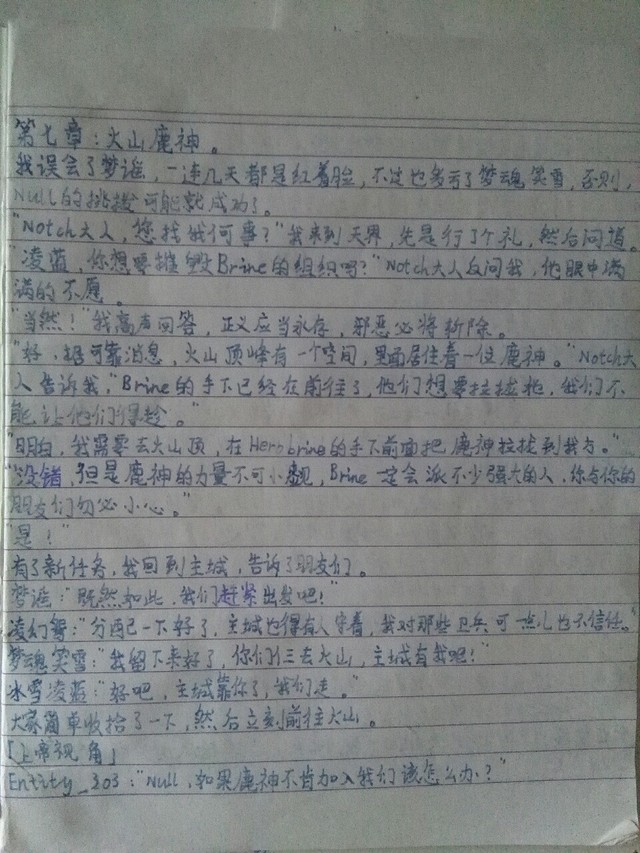 第七章：火山鹿神。
我误会了梦谣，一连几天都是红着脸，不过也多亏了梦魂笑雪，否则，
Null的挑拨可能就成功了。
"Notch大人，您找我何事？"我来到天界，先是行了个礼，然后问道。
"凌蓝，你想要摧毁Brine的组织吗？"Notch大人反问我，他眼中满
满的不愿。
"当然！"我高声回答，正义应当永存，邪恶必将斩除。
"好，据可靠消息，火山顶峰有一个空间，里面居住着一位鹿神。"Notch大
人告诉我，"Brine的手下已经在前往了，他们想要拉拢他，我们不
能让他们得趁。"
"明白，我需要去火山顶，在Herobrine的手下前面把鹿神拉拢到我方。"
"没错，但是鹿神的力量不可小觑，Brine一定会派不少强大的人，你与你的
朋友们勿必小心。"
"是！"
有了新任务，我回到主城，告诉了朋友们。
梦谣："既然如此，我们赶紧出发吧！"
凌幻鸳："分配一下好了，主城也得有人守着，我对那些卫兵可一点儿也不信任。"
梦魂笑雪："我留下来好了，你们仨去火山，主城有我呢！"
冰雪凌蓝："好吧，主城靠你了，我们走。"
大家简单收拾了一下，然后立刻前往火山。
「上帝视角」
Entity_303："Null，如果鹿神不肯加入我们该怎么办？"